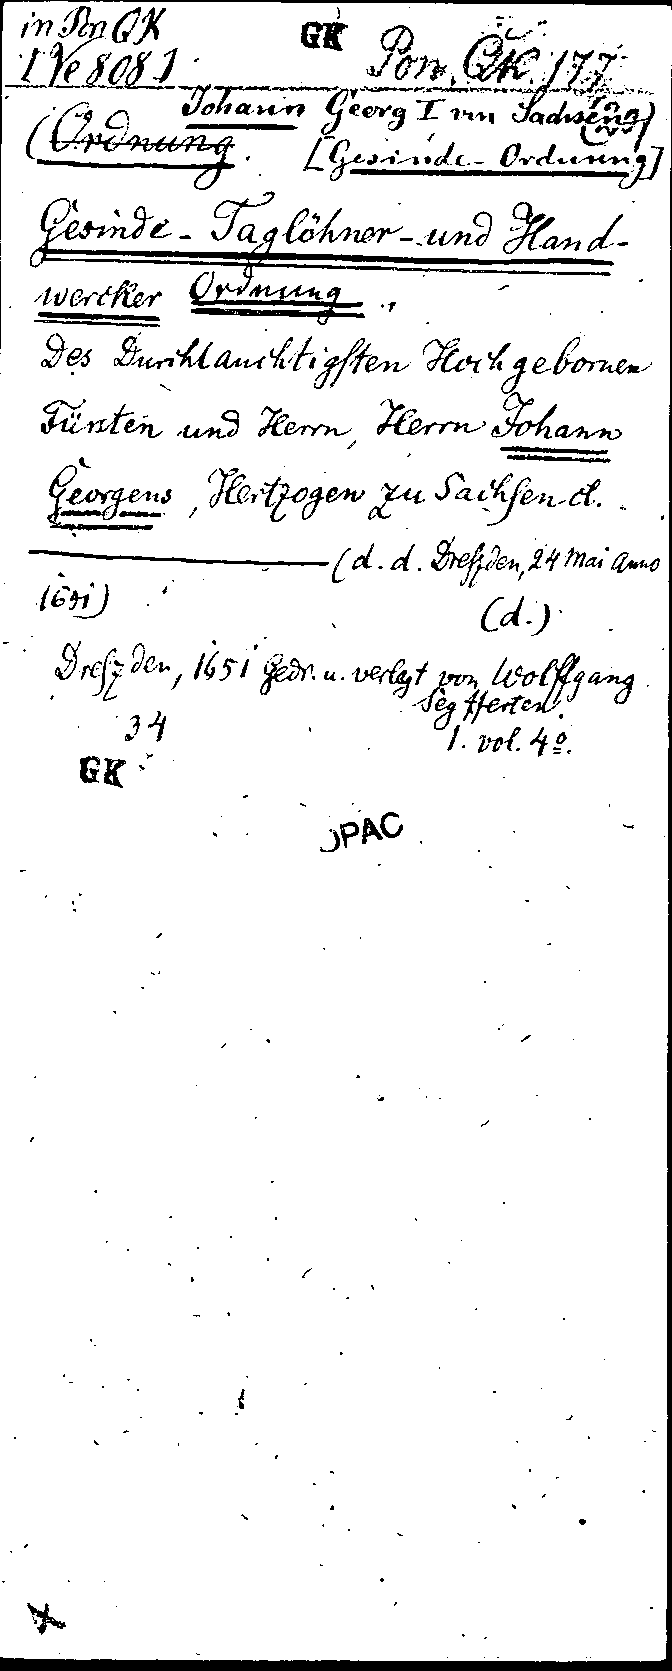 in Pon QK
I Ve 808 1
GK
Pon. QK. 177
Johann Georg I von Sachsen
(Ordnung. [Gesinde-Ordnung]
Gesinde-Taglöhner-und Hand-
wercker Ordnung.,
Des Durchlauchtigsten Hochgebornen
Fürsten und Herrn, Herrn Johann
Georgens, Hertzogen zu Sachsen
(d. d. Dreszden, 24 Mai Anno
1651)
(d.)
Dreszden, 1651 Gedr. u. verlegt von Wolffgang
Seyfferten.
34
1. vol. 4º.
GK
OPAC